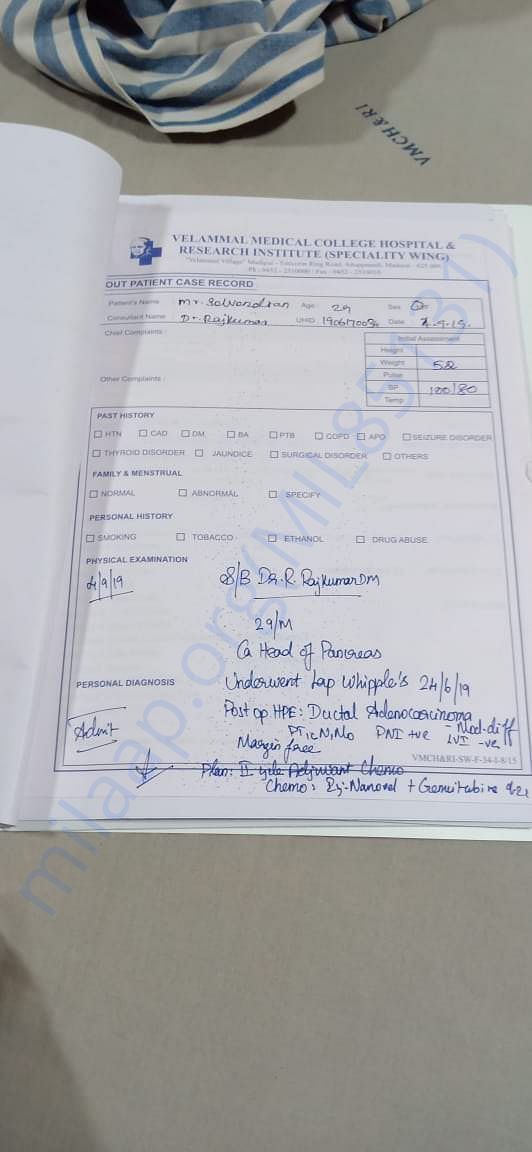 VMCH&RI
VELAMMAL MEDICAL COLLEGE HOSPITAL &
RESEARCH INSTITUTE (SPECIALITY WING)
"Velammal Village" Madurai - Tuticorin Ring Road, Anuppanadi, Madurai - 625 009
OUT PATIENT CASE RECORD
Patient's Name : Mr. Age : 29 Sex :
Consultant Name : Dr. Rajkumar UHID : Date :
Chief Complaints :
Initial Assessment
Height
Weight 52
Pulse
BP 100/80
Temp
Other Complaints :
PAST HISTORY
HTN CAD DM BA PTB COPD APD SEIZURE DISORDER
THYROID DISORDER JAUNDICE SURGICAL DISORDER OTHERS
FAMILY & MENSTRUAL
NORMAL ABNORMAL SPECIFY
PERSONAL HISTORY
SMOKING TOBACCO ETHANOL DRUG ABUSE
PHYSICAL EXAMINATION
4/9/19 S/B Dr. R. Rajkumar DM
29/M
Ca Head of Pancreas
PERSONAL DIAGNOSIS
Underwent Lap Whipple's 24/6/19
Admit
Post op HPE: Ductal Adenocarcinoma - Mod. diff
N1 M0 PNI +ve LVI -ve
Margin free
VMCH&RI-SW-F-34-I-8/15
Plan: II cycle Adjuvant Chemo
Chemo: + Gemcitabine
milaap.org(MIL85131)